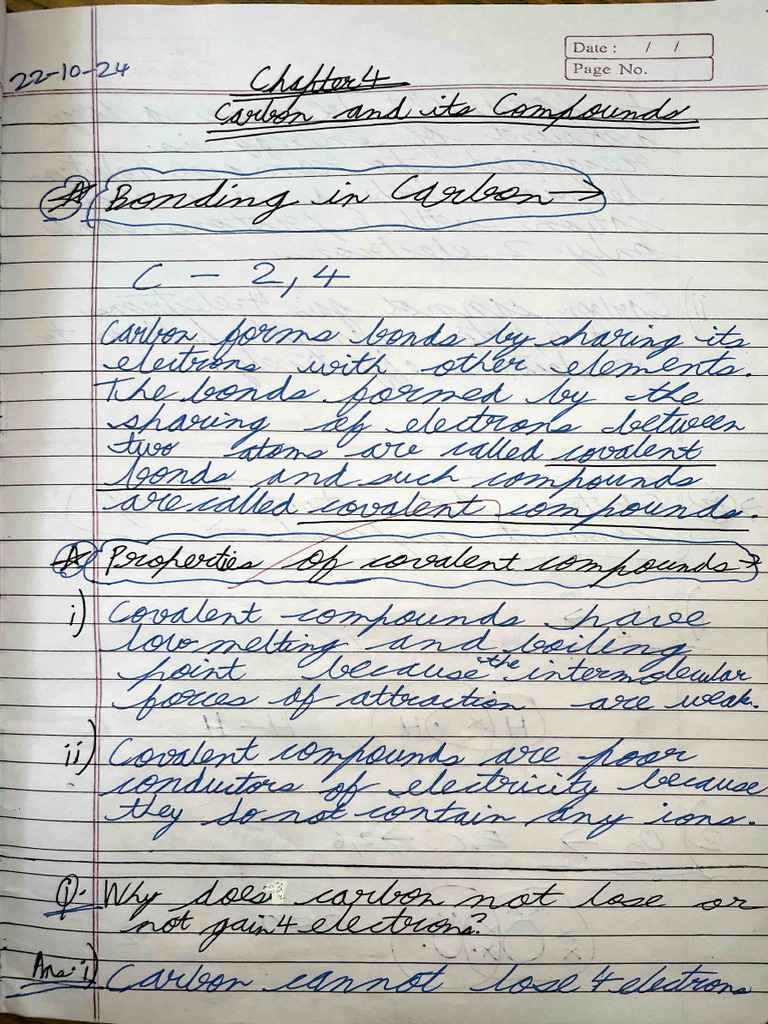 Date : / /
Page No.
22-10-24
Chapter 4
Carbon and its Compounds
Bonding in Carbon →
C - 2, 4
Carbon forms bonds by sharing its
electrons with other elements.
The bonds formed by the
sharing of electrons between
two atoms are called covalent
bonds and such compounds
are called covalent compounds.
Properties of covalent compounds →
i) Covalent compounds have
low melting and boiling
point because the intermolecular
forces of attraction are weak.
ii) Covalent compounds are poor
conductors of electricity because
they do not contain any ions.
Q- Why does carbon not lose or
not gain 4 electrons?
Ans- i) Carbon cannot lose 4 electrons